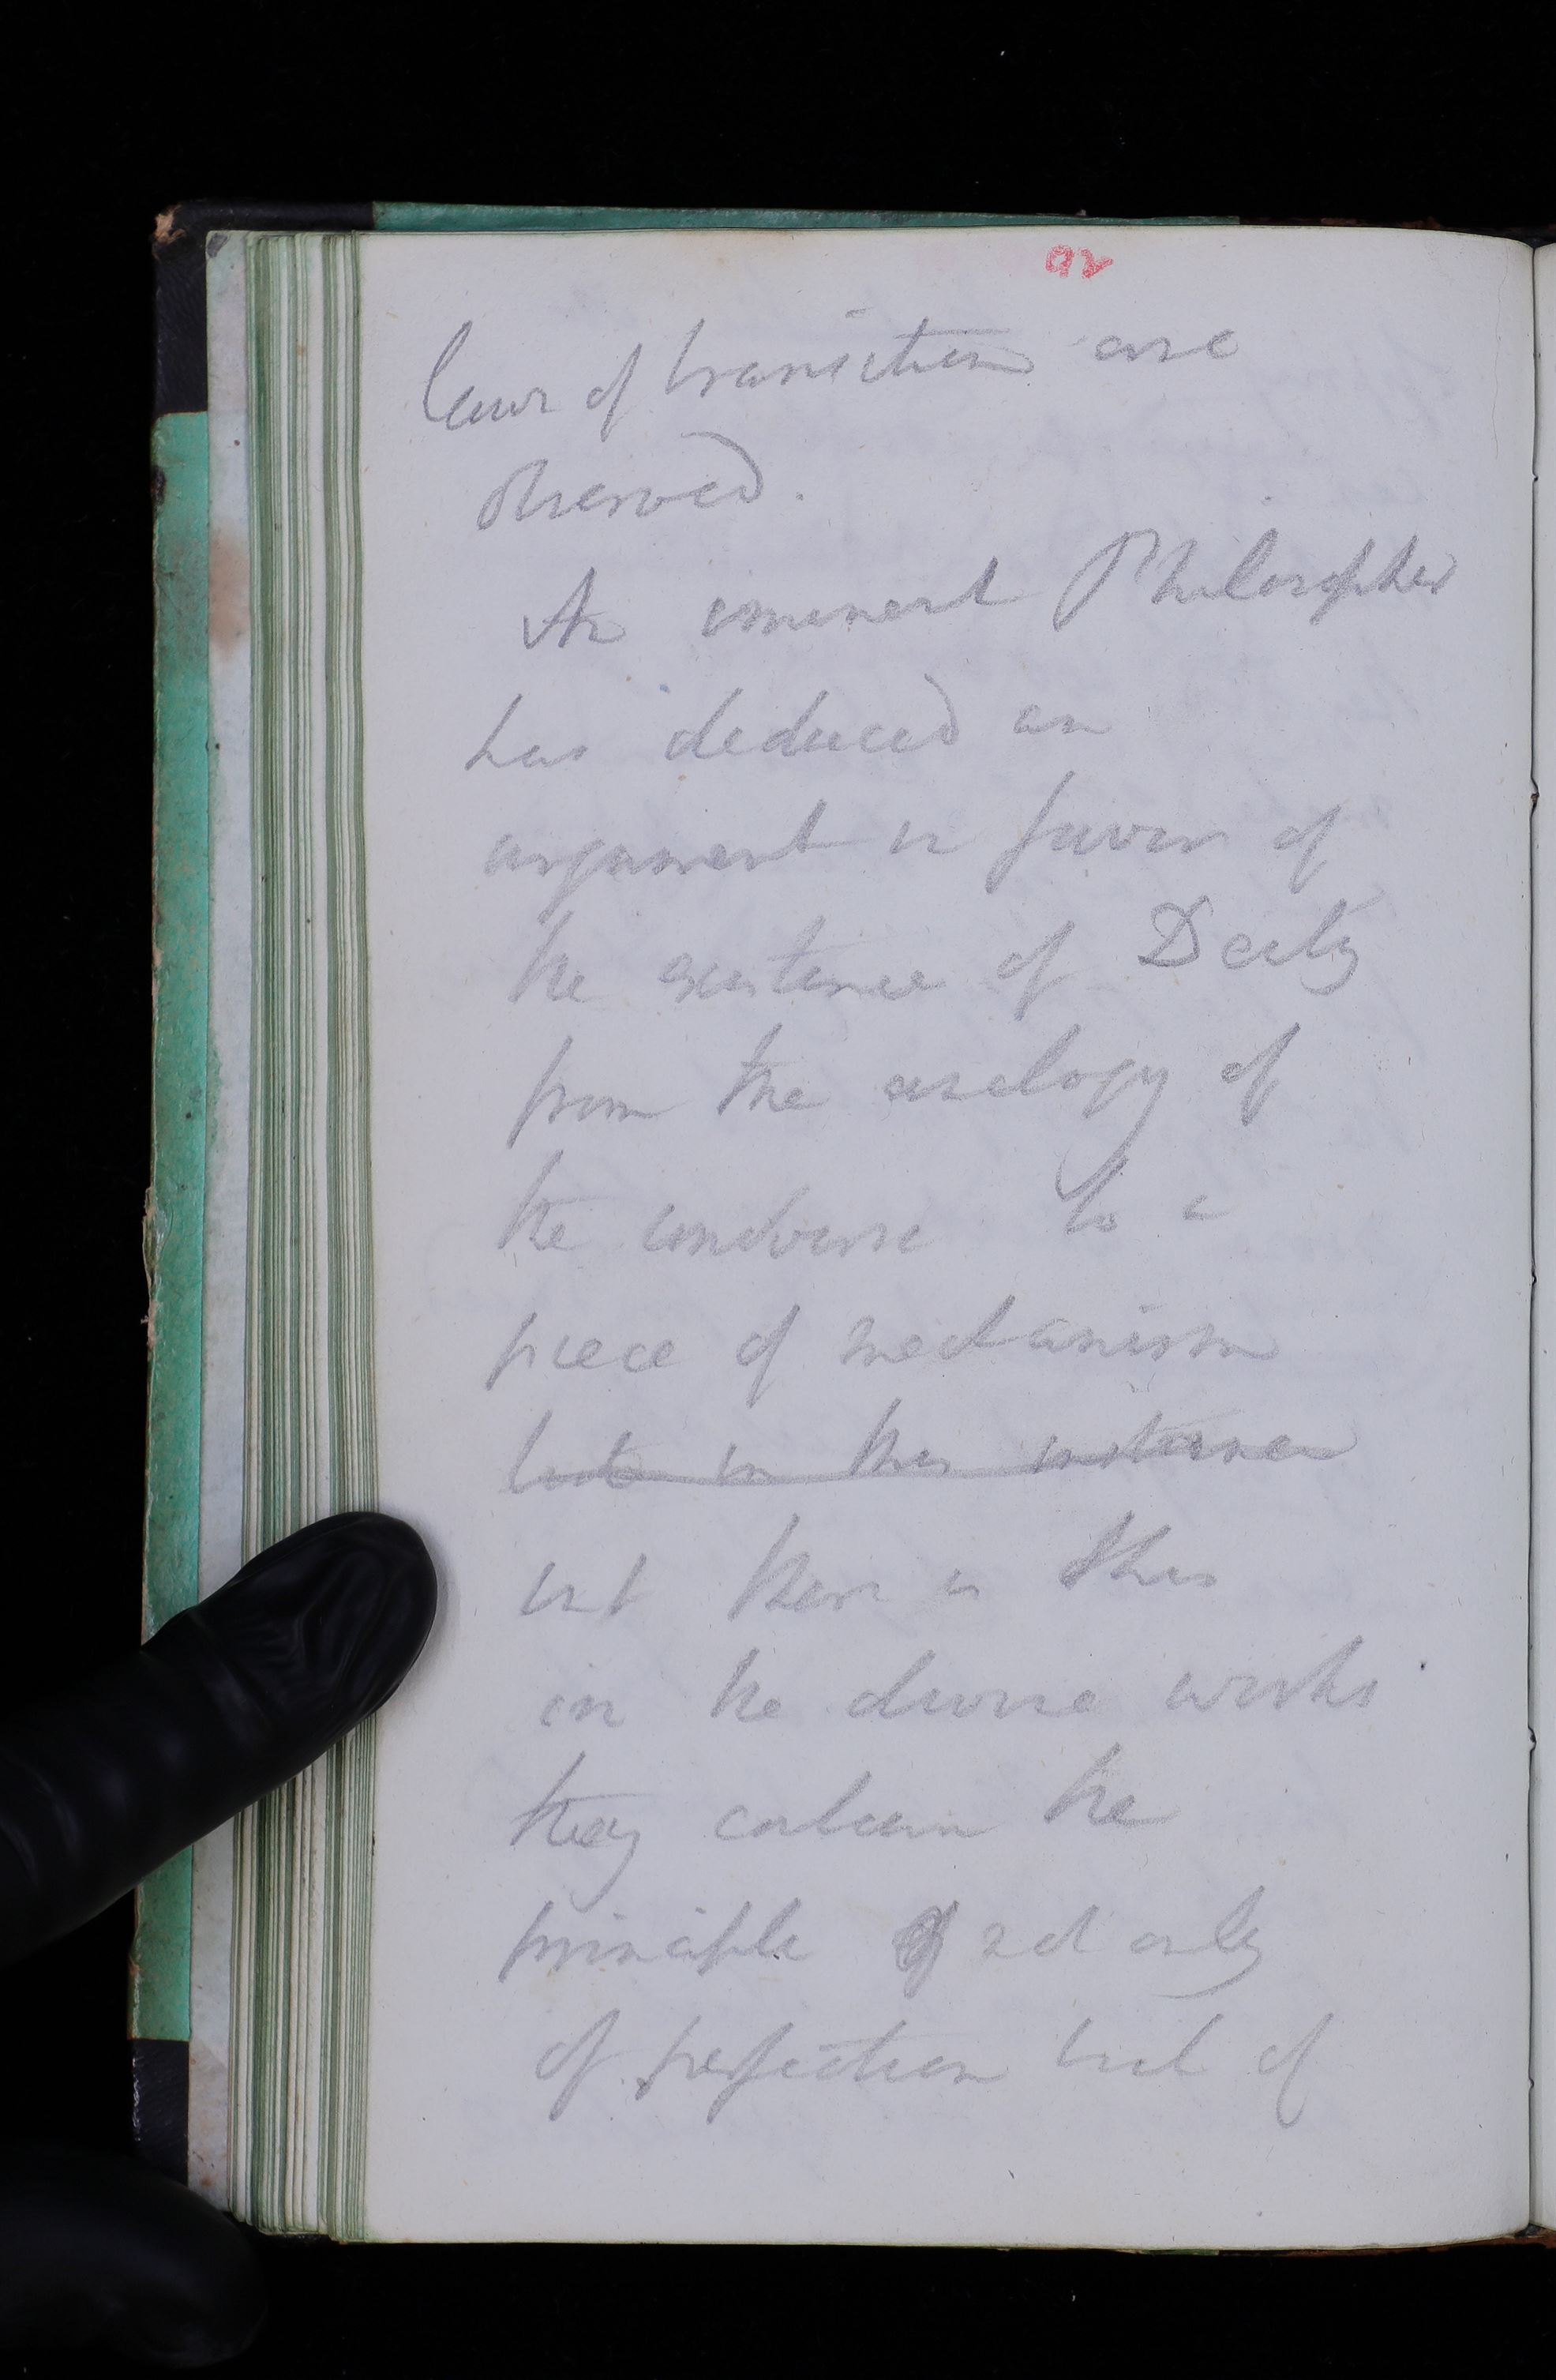 92
laws of transition are
observed.
An eminent Philosopher
has deduced an
argument in favor of
the existence of Deity
from the analogy of
the universe to a
piece of mechanism
but in this instance
but there is this
in the divine works
they contain the
principle of not only
of perfection but of